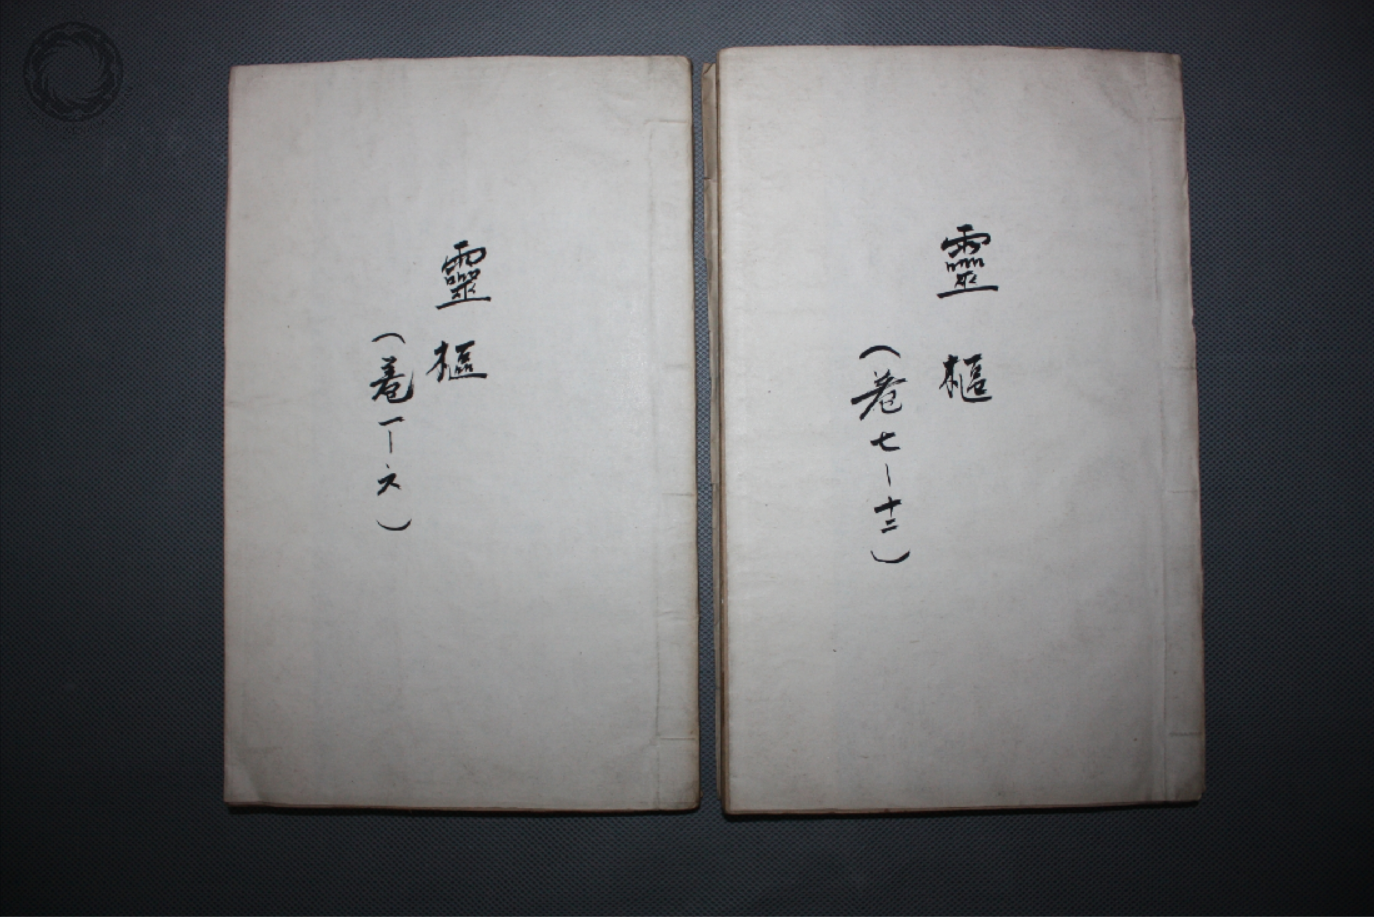 靈樞
（卷一－六）
靈樞
（卷七－十二）